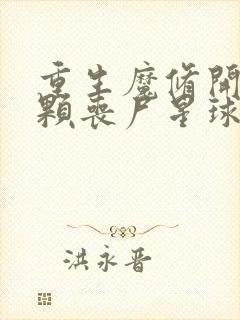 重生魔脩開
顆喪尸星球
洪永晋